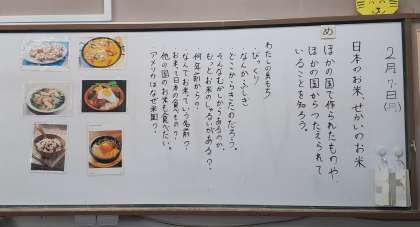 ２月７日（月）
日本のお米 せかいのお米
め ほかの国で作られたものや、
ほかの国からつたえられて
いることを知ろう。
わたしの気もち
びっくり
なんかふしぎ
どこからきたのだろう。
そんなむかしからあるのか。
もっとお米のしゅるいがある？
何年前から？
なんでお米っていう名前？
お米って日本の食べもの？
他の国のお米も食べたい。
アメリカはなぜ米国？